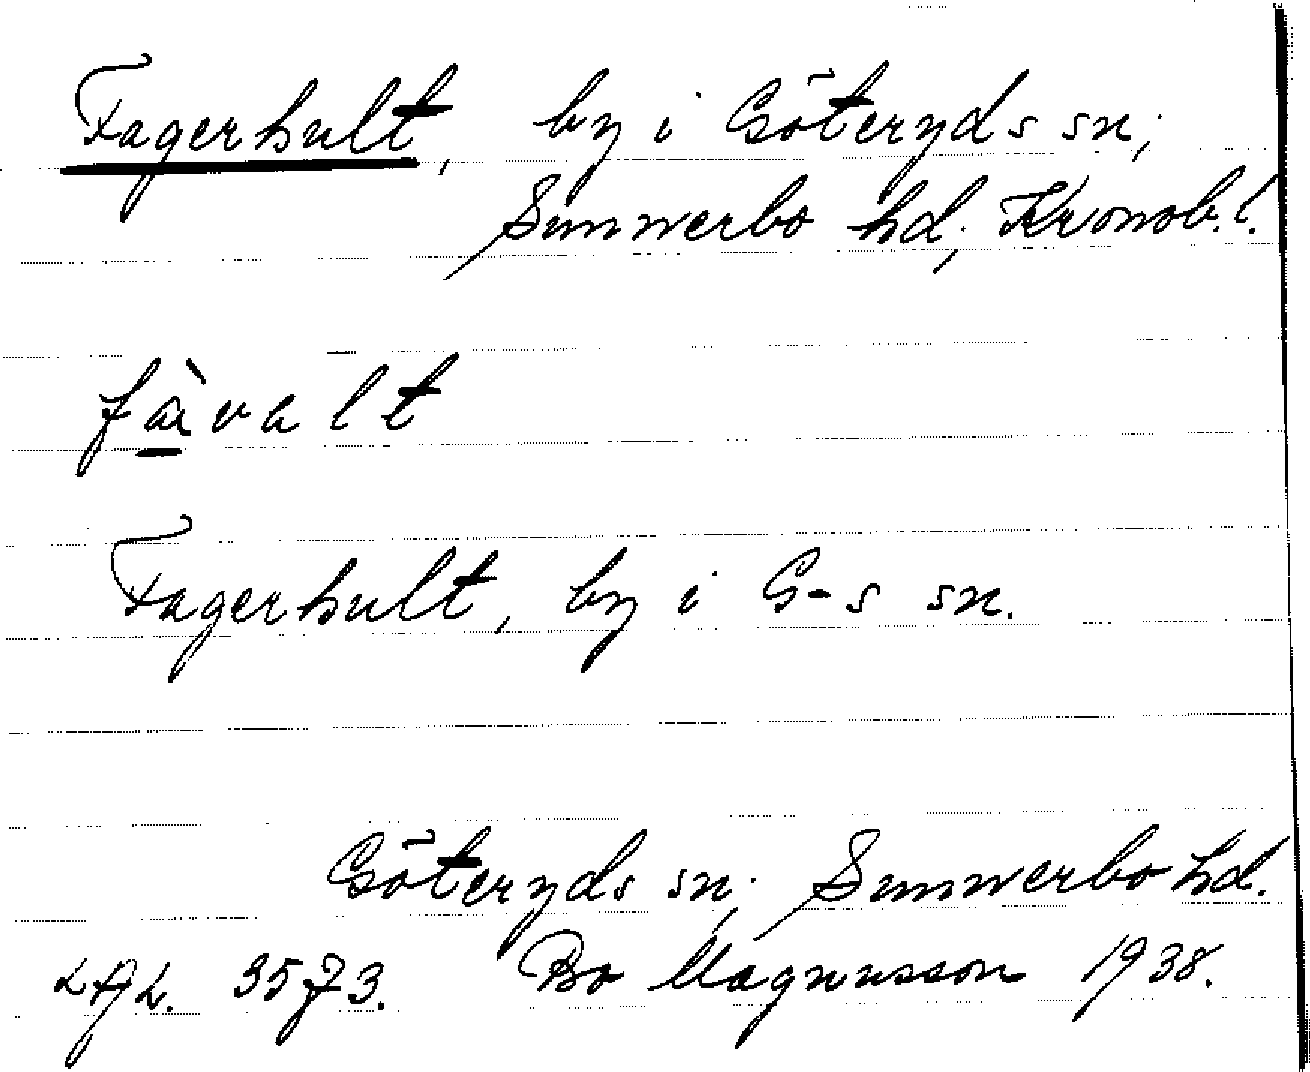 Fagerhult, by i Göteryds sn;
Sunnerbo hd., Kronob. l.
fàvalt
Fagerhult, by i G-s sn.
Göteryds sn., Sunnerbo hd.
LAL. 3573. Bo Magnusson 1938.